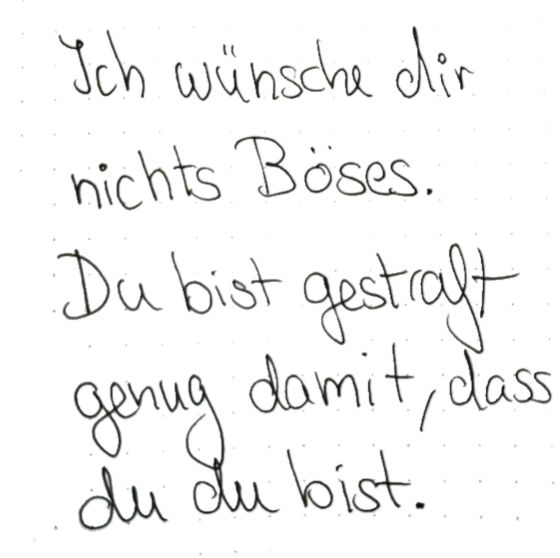 Ich wünsche dir
nichts Böses.
Du bist gestraft
genug damit, dass
du du bist.